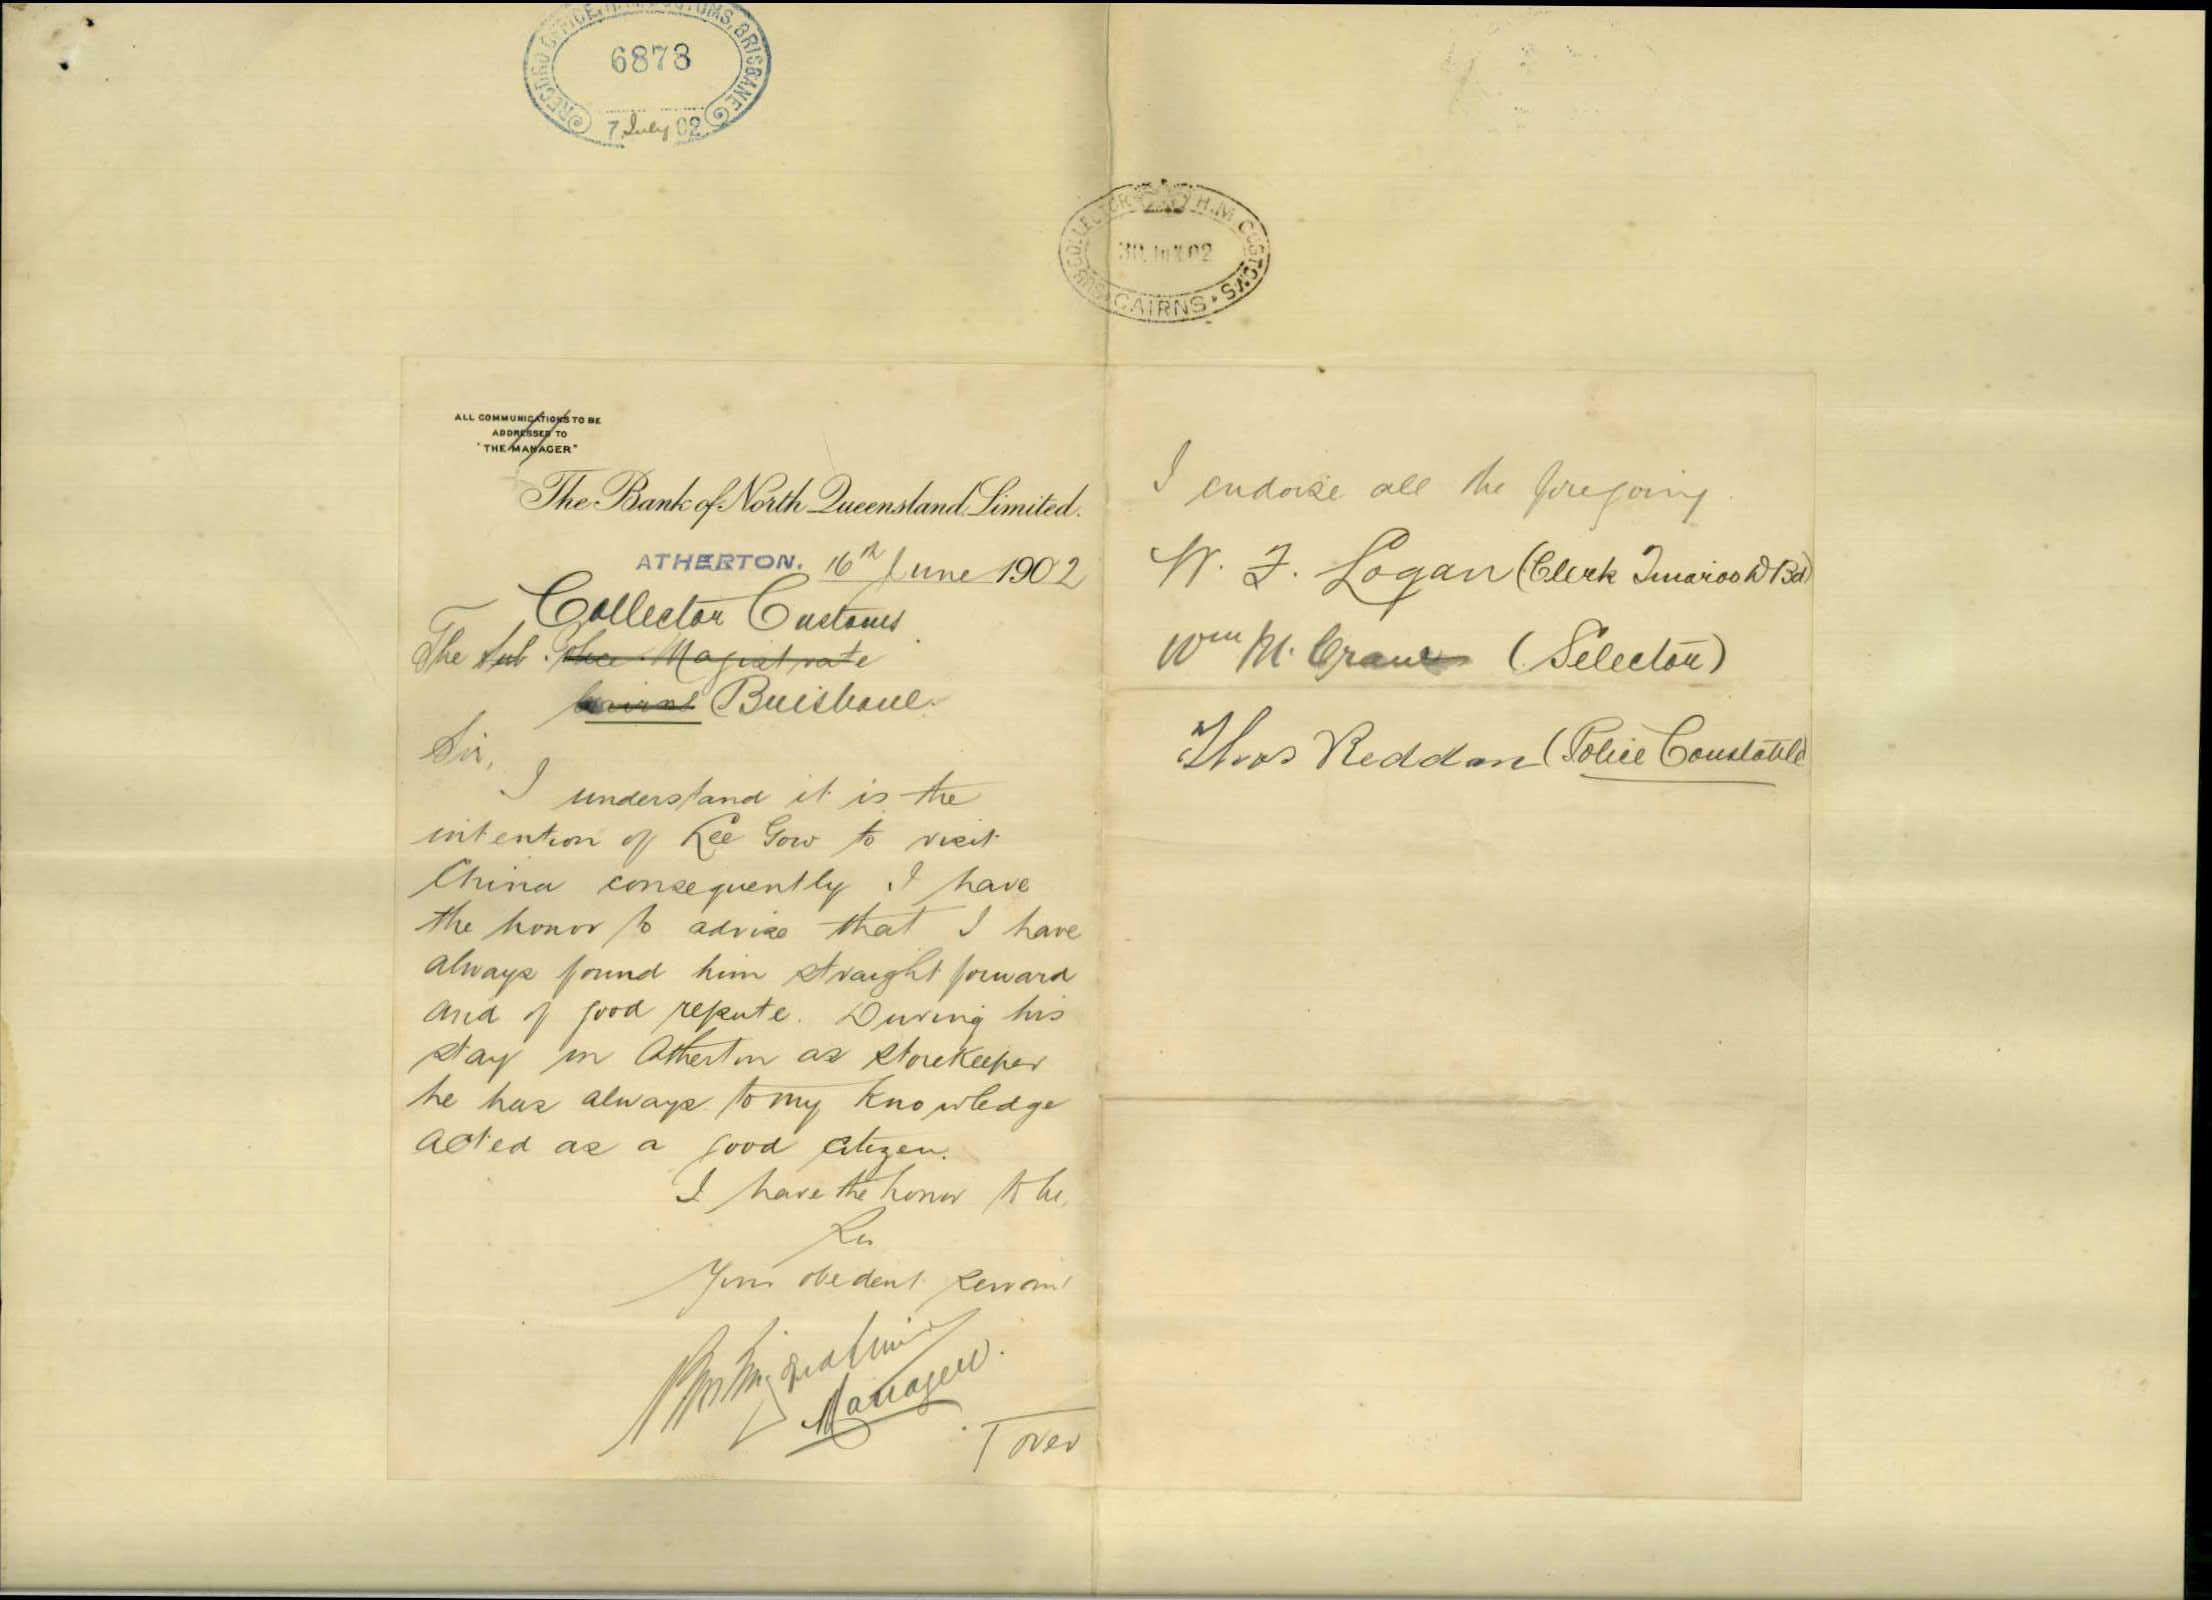 RECORD OFFICE, H.M. CUSTOMS, BRISBANE
6873
7 July 02
SUB COLLECTOR H.M. CUSTOMS
30 Jun 02
CAIRNS
ALL COMMUNICATIONS TO BE
ADDRESSED TO
"THE MANAGER"
The Bank of North Queensland Limited.
ATHERTON. 16th June 1902
Collector Customs
The Sub Police Magistrate
Cairns Brisbane.
Sir,
I understand it is the
intention of Lee Gow to visit
China consequently I have
the honor to advise that I have
always found him straight forward
and of good repute. During his
stay in Atherton as storekeeper
he has always to my knowledge
acted as a good citizen.
I have the honor to be,
Sir
Your obedient servant
Manager.
T over
I endorse all the foregoing.
W. F. Logan (Clerk Tinaroo D Bd)
Wm M. (Selector)
Thos Reddan (Police Constable)